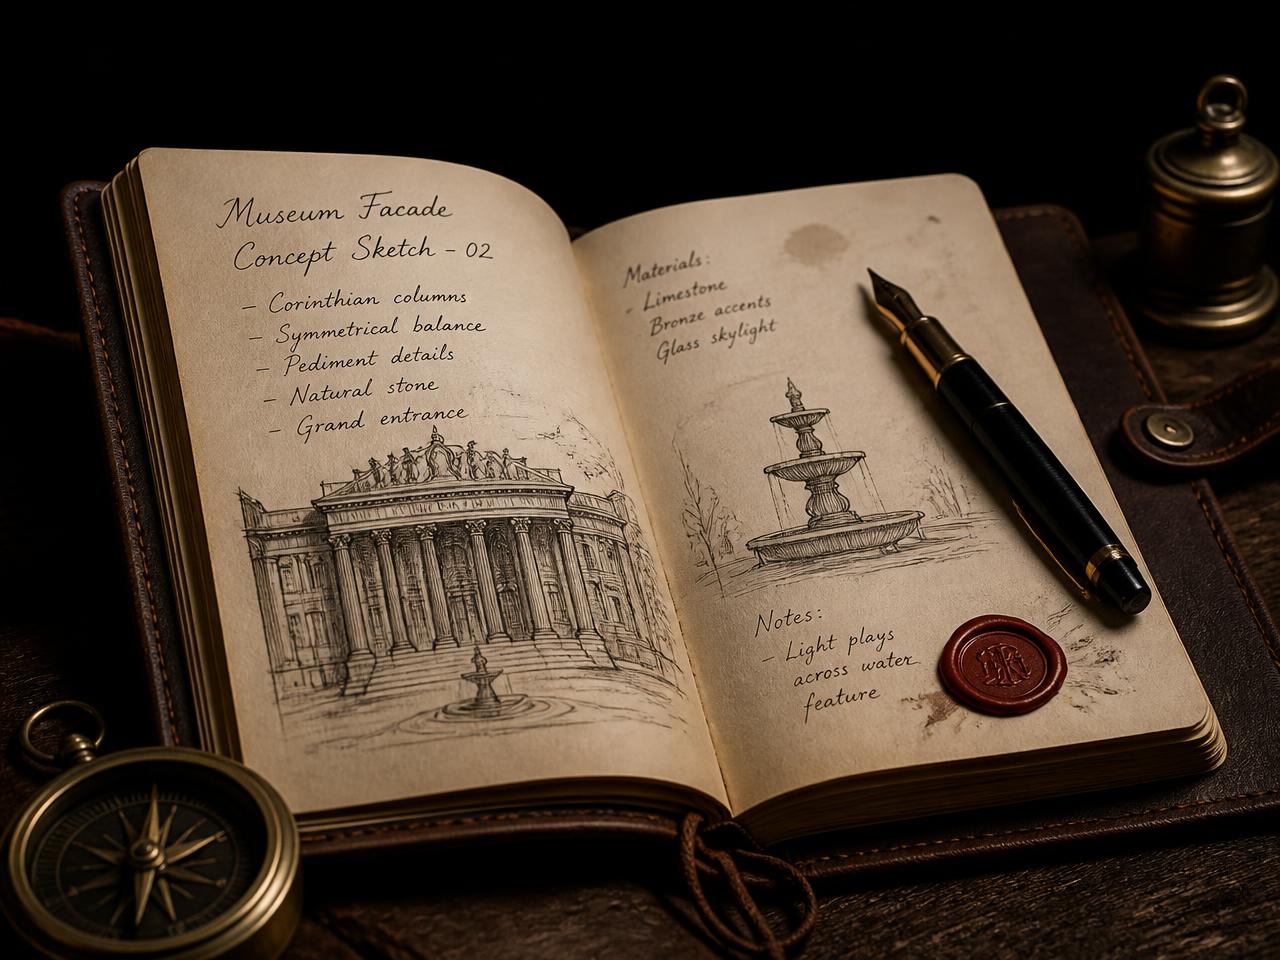 Museum Facade
Concept Sketch - 02
- Corinthian columns
- Symmetrical balance
- Pediment details
- Natural stone
- Grand entrance
Materials:
- Limestone
Bronze accents
Glass skylight
Notes:
- Light plays
across water
feature